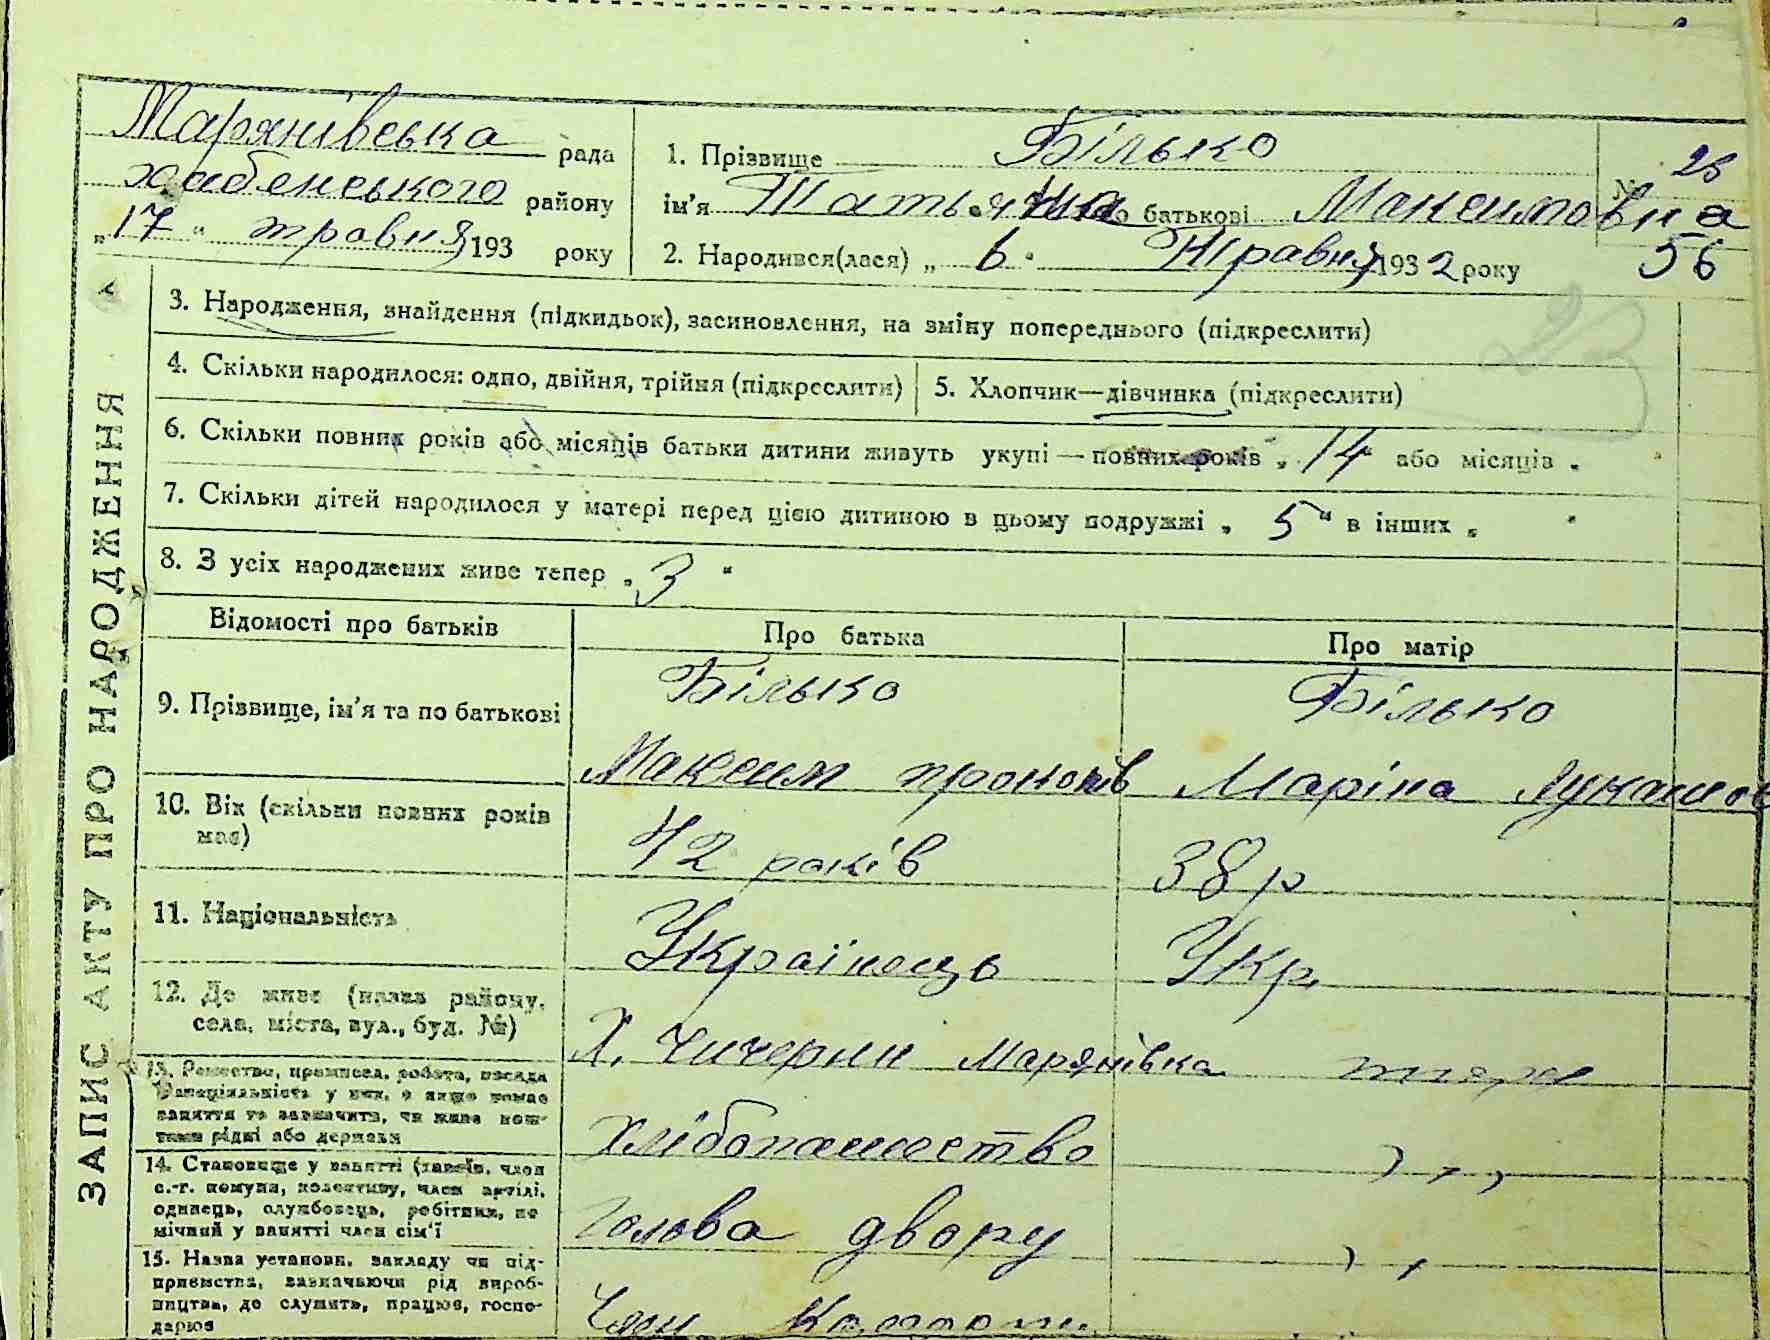 Марянівська рада
Хабенського району
„17“ травня 193 року
1. Прізвище Білько
ім'я Татьяна по батькові Максимовна
2. Народився(лася) „6“ Травня 1932 року
№ 23
56
23
ЗАПИС АКТУ ПРО НАРОДЖЕННЯ
3. Народження, знайдення (підкидьок), засиновлення, на зміну попереднього (підкреслити)
4. Скільки народилося: одно, двійня, трійня (підкреслити)
5. Хлопчик—дівчинка (підкреслити)
6. Скільки повних років або місяців батьки дитини живуть укупі — повних років „14 або місяців „ “
7. Скільки дітей народилося у матері перед цією дитиною в цьому подружжі „5“ в інших „ “
8. З усіх народжених живе тепер „3“
Відомості про батьків
Про батька
Про матір
9. Прізвище, ім'я та по батькові
Білько
Максим
Білько
Маріна Лукашов
10. Вік (скільки повних років має)
42 років
38 р
11. Національність
Українець
Укр.
12. Де живе (назва району, села, міста, вул., буд. №)
Х. Чичерин Марянівка
13. Ремество, промисел, робота, посада
спеціяльність у них, а якщо немає
заняття то зазначити, чи живе кош-
тами рідні або держави
Хлібопашество
" "
14. Становище у занятті (хазяїн, член
с.-г. комуни, колективу, член артілі,
одинець, службовець, робітник, по
мічний у занятті член сім'ї
голова двору
" "
15. Назва установи, закладу чи під-
приємства, зазначаючи рід вироб-
ництва, де служить, працює, госпо-
дарює
Член